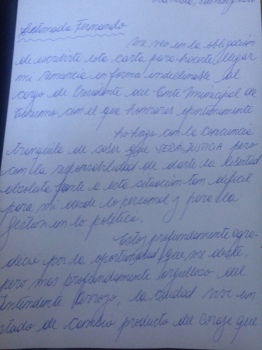 Estimado Fernando
Me veo en la obligación
de escribirte esta carta para hacerte llegar
mi renuncia en forma indeclinable al
cargo de Presidente del Ente Municipal de
Turismo con el que honraras oportunamente
Lo hago con la conciencia
tranquila de saber que SERA JUSTICIA pero
con la responsabilidad de darte la libertad
absoluta frente a esta situación tan dificil
para mi desde lo personal y para la
gestión en lo politico.
Estoy profundamente agra-
decido por la oportunidad que me diste,
pero mas profundamente orgulloso del
Intendente Arroyo, la ciudad vive un
estado de cambio producto del coraje que